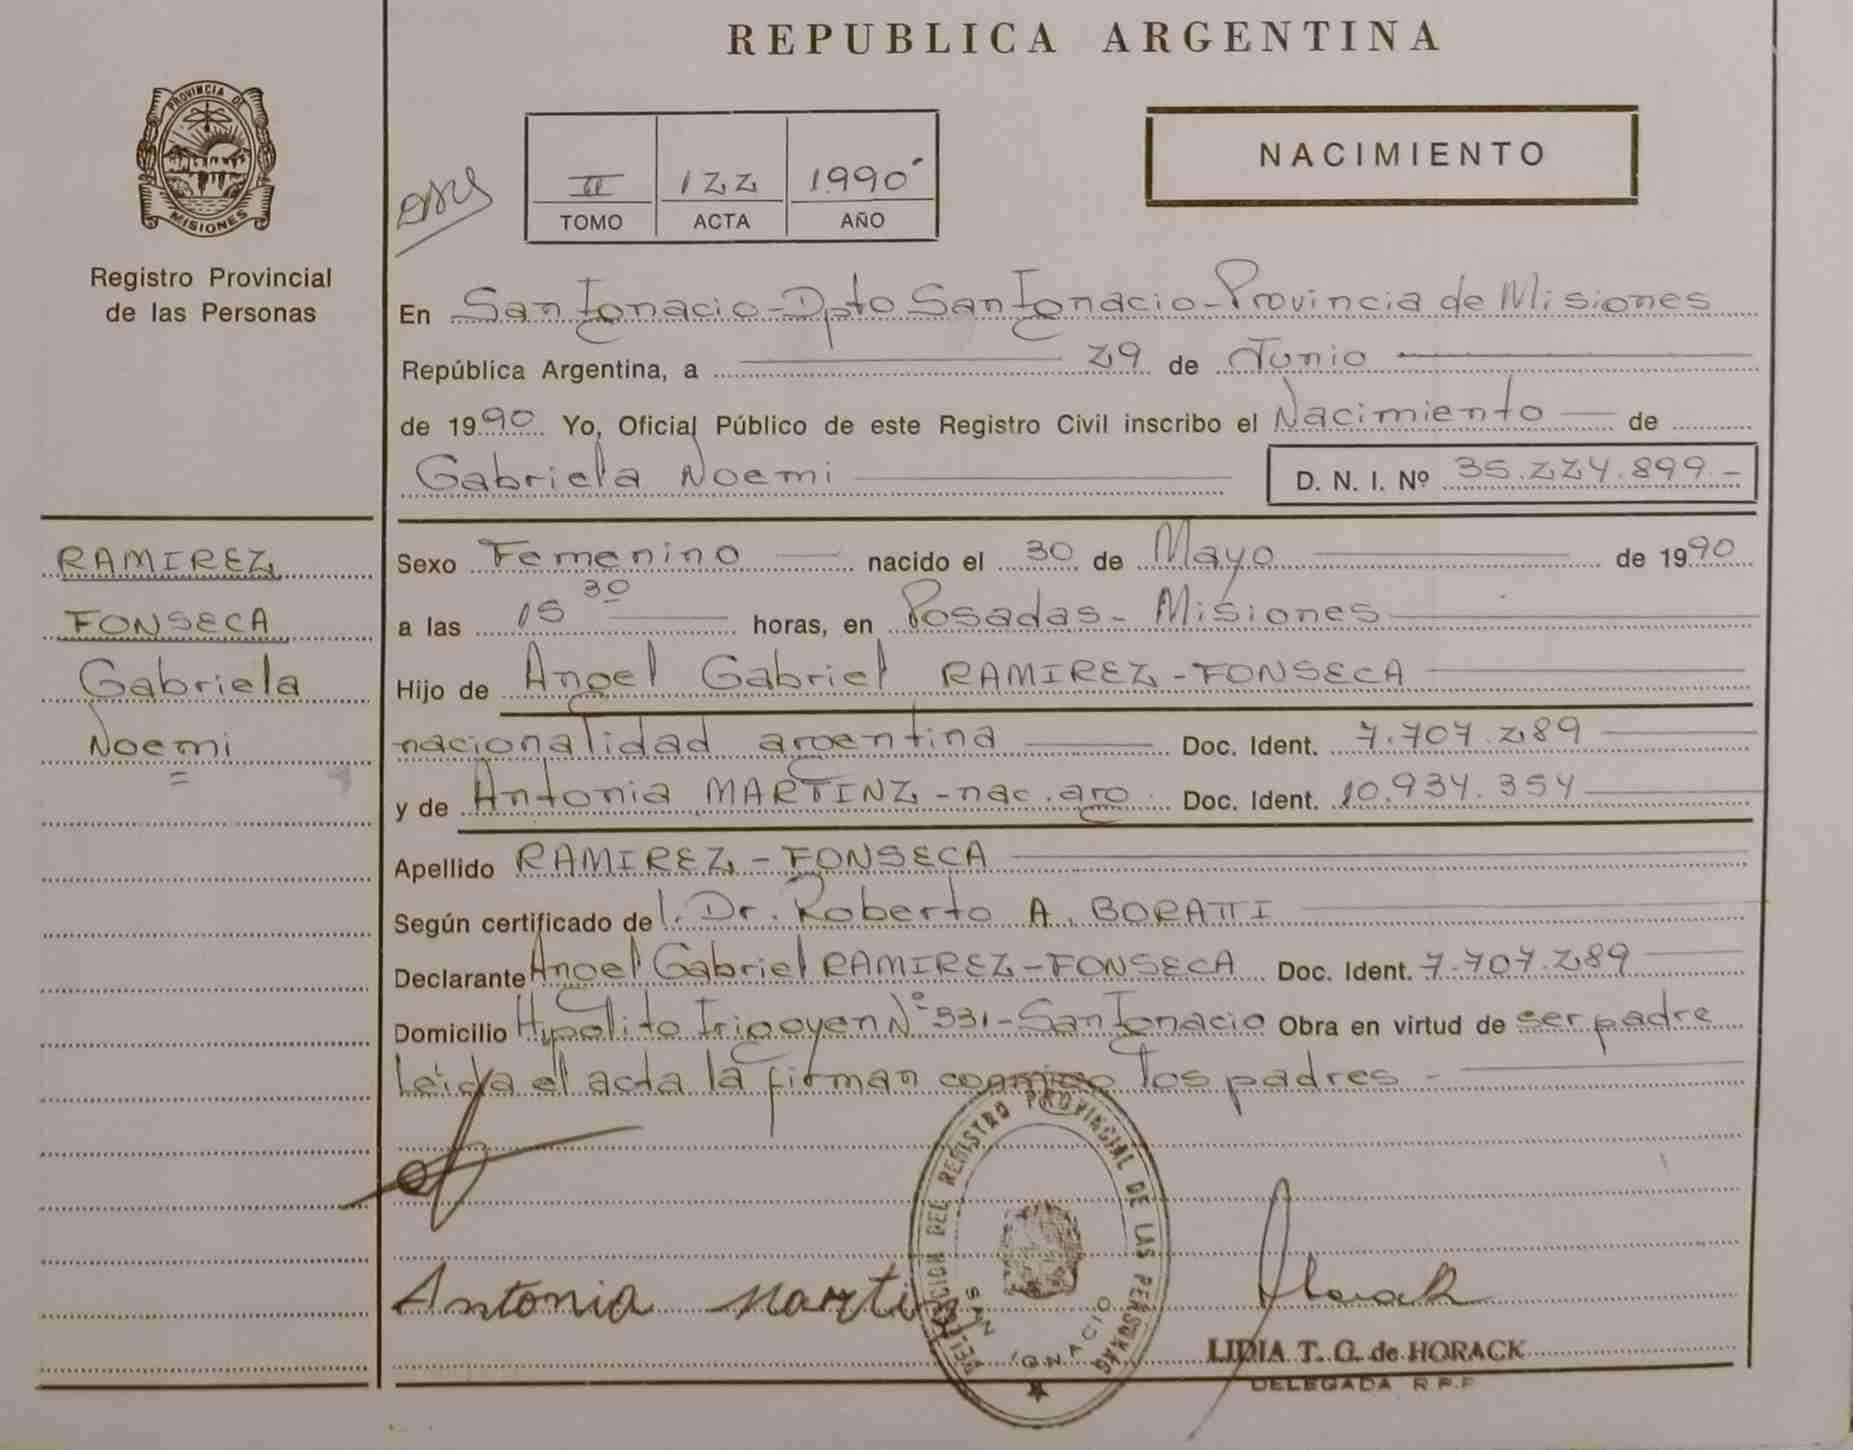 REPUBLICA ARGENTINA
PROVINCIA DE
MISIONES
Registro Provincial
de las Personas
NACIMIENTO
II 122 1990
TOMO ACTA AÑO
En San Ignacio - Dpto San Ignacio - Provincia de Misiones
República Argentina, a 29 de Junio
de 1990 Yo, Oficial Público de este Registro Civil inscribo el Nacimiento de
Gabriela Noemi D. N. I. Nº 35.224.899.-
RAMIREZ
FONSECA
Gabriela
Noemi
Sexo Femenino nacido el 30 de Mayo de 1990
a las 15 30 horas, en Posadas - Misiones
Hijo de Angel Gabriel RAMIREZ - FONSECA
nacionalidad argentina Doc. Ident. 7.707.289
y de Antonia MARTINZ - nac. arg. Doc. Ident. 10.934.354
Apellido RAMIREZ - FONSECA
Según certificado de l. Dr. Roberto A. BORATTI
Declarante Angel Gabriel RAMIREZ - FONSECA Doc. Ident. 7.707.289
Domicilio Hypolito Irigoyen Nº 331 - San Ignacio Obra en virtud de ser padre
Leida el acta la firman conmigo los padres -
DELEGACION DEL REGISTRO PROVINCIAL DE LAS PERSONAS
SAN IGNACIO
Antonia Martinz
Horack
LIDIA T. G. de HORACK
DELEGADA R.P.P